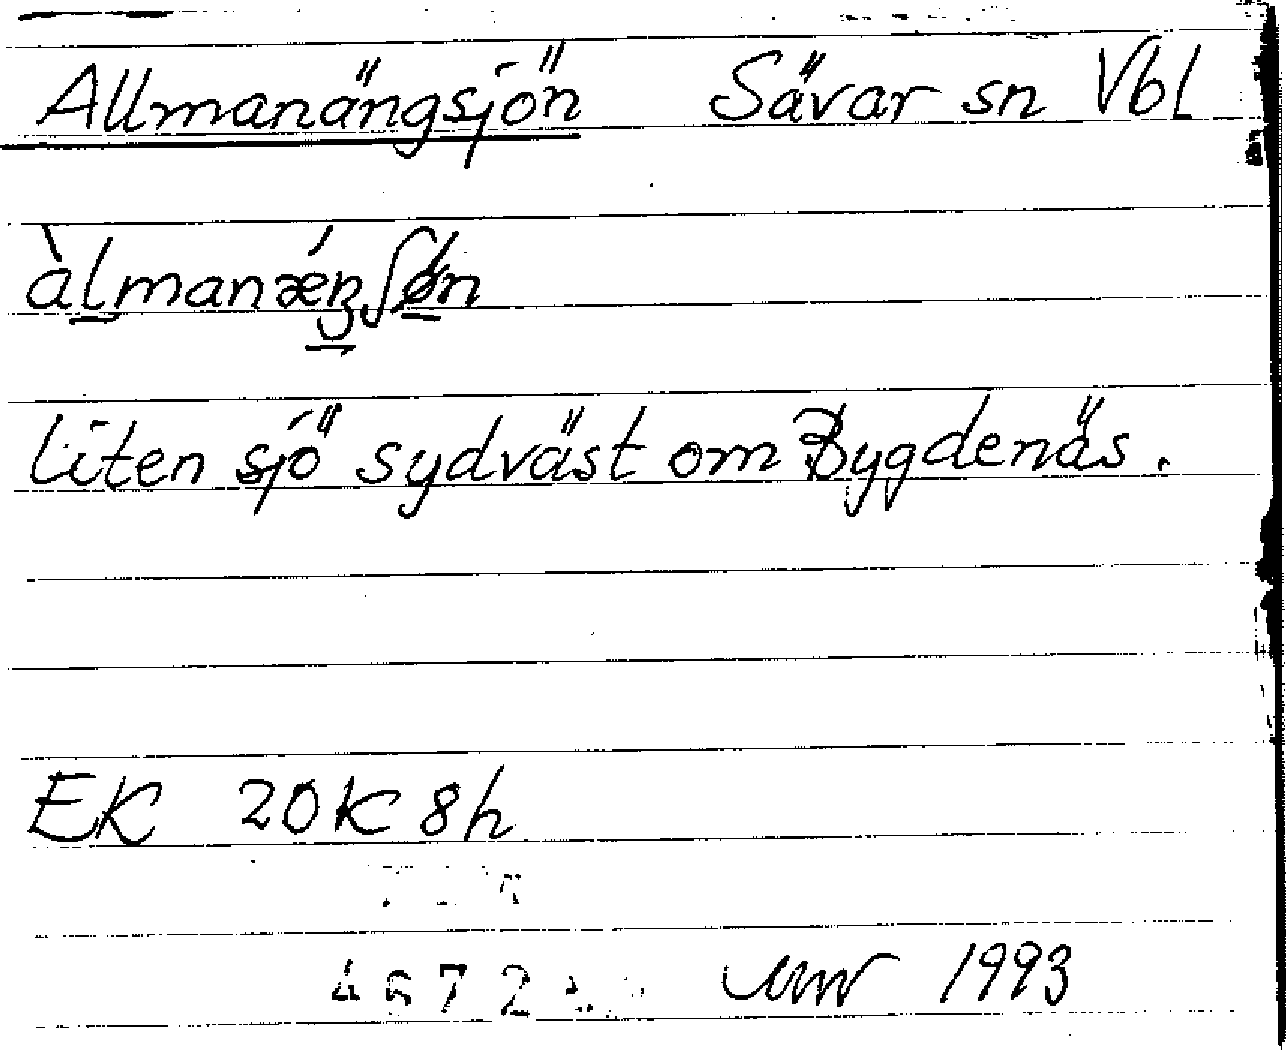 Allmanängsjön Sävar sn Vbl
àlmanǽŋʃøn
liten sjö sydväst om Bygdenäs.
EK 20K 8h
4672 1993